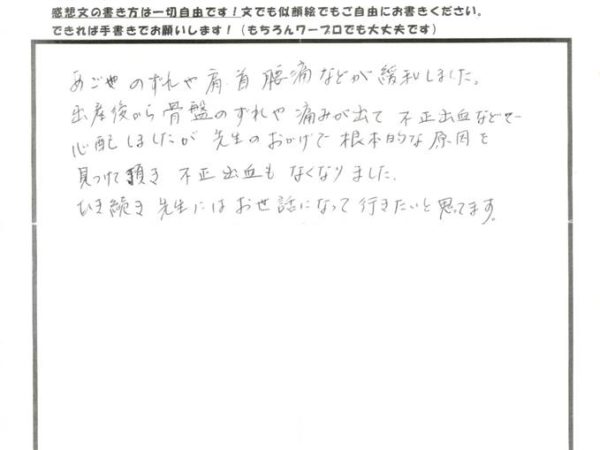 感想文の書き方は一切自由です！文でも似顔絵でもご自由にお書きください。
できれば手書きでお願いします！（もちろんワープロでも大丈夫です）
あごや のずれや 肩、首 腰痛などが 緩和しました。
出産後から 骨盤のずれや 痛みが出て 不正出血などで
心配しましたが 先生のおかげで 根本的な 原因を
見つけて頂き 不正出血も なくなりました。
ひき続き 先生には お世話になって 行きたいと 思ってます。